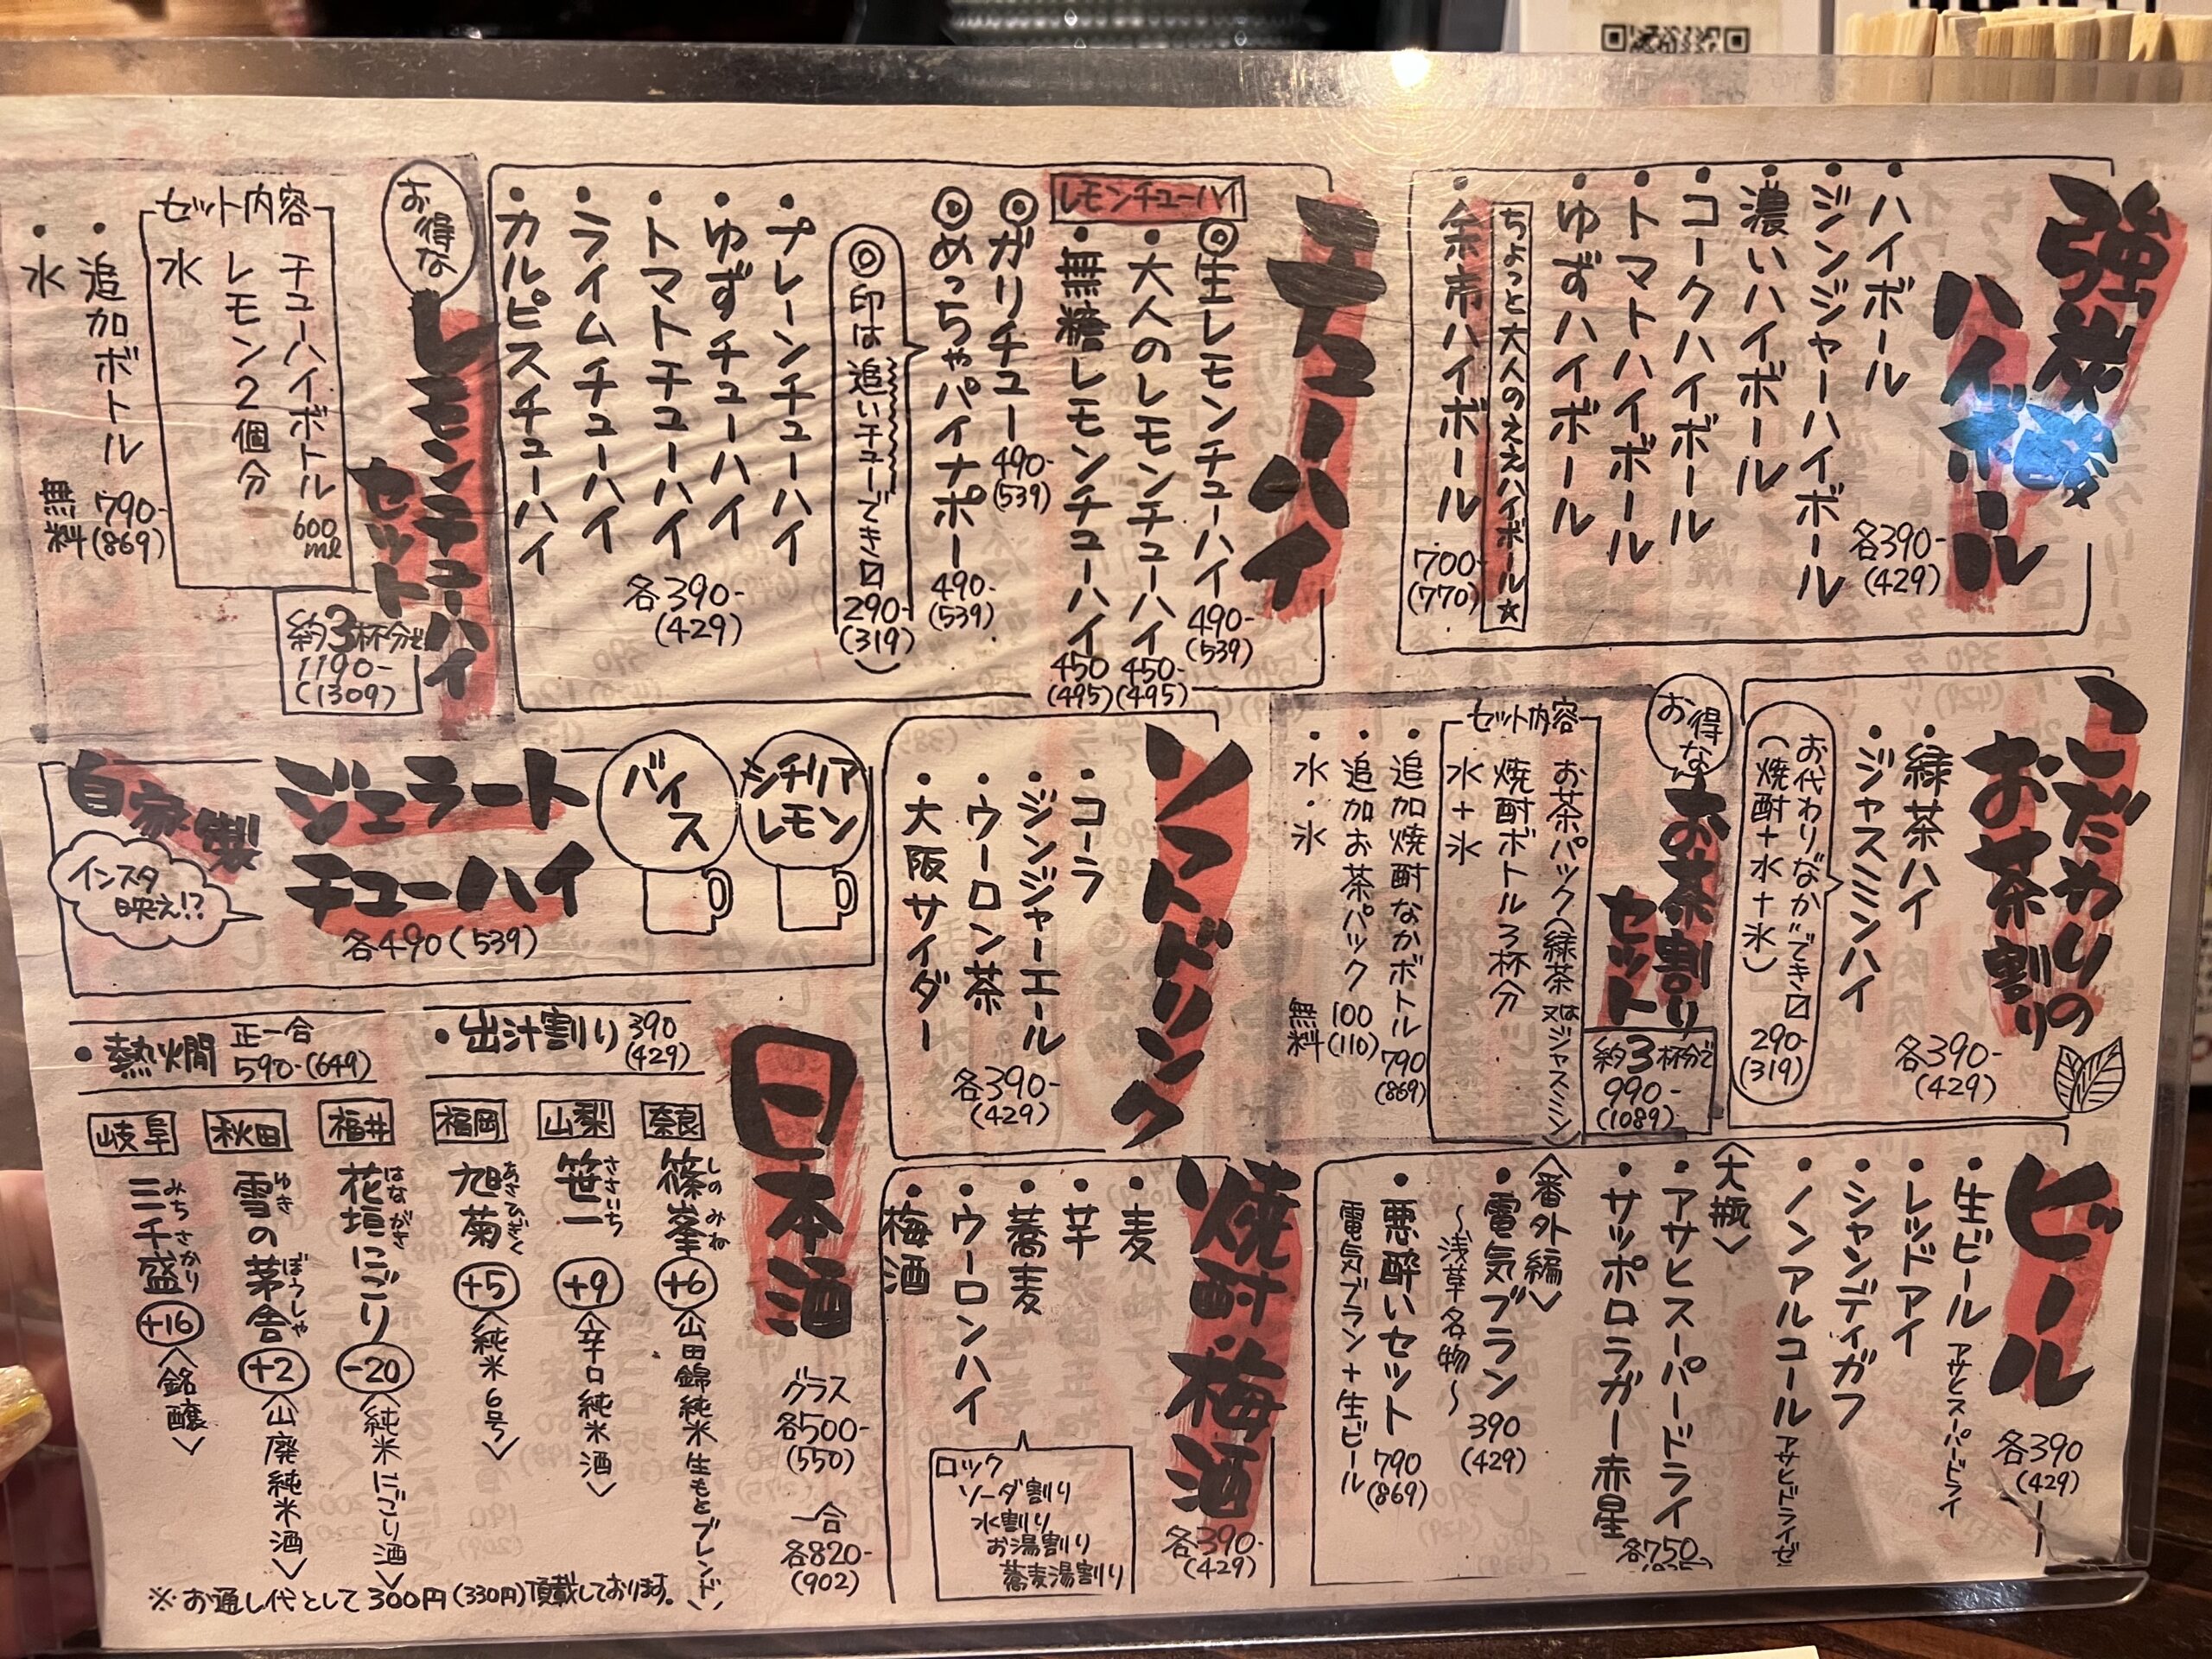 強炭酸
ハイボール
各390-
(429)
・ハイボール
・ジンジャーハイボール
・濃いハイボール
・コークハイボール
・トマトハイボール
・ゆずハイボール
ちょっと大人のええハイボール☆
・余市ハイボール
700-
(770)
チューハイ
レモンチューハイ
◎生レモンチューハイ
490-
(539)
・大人のレモンチューハイ
450-
(495)
・無糖レモンチューハイ
450
(495)
◎ガリチュー
490-
(539)
◎めっちゃパイナポー
490-
(539)
◎印は追いチューでき〼
290-
(319)
・プレーンチューハイ
・ゆずチューハイ
・トマトチューハイ
・ライムチューハイ
・カルピスチューハイ
各390-
(429)
お得な
レモンチューハイ
セット
約3杯分で
1190-
(1309)
セット内容
チューハイボトル600ml
レモン2個分
氷
・追加ボトル
790-
(869)
・氷
無料
こだわりの
お茶割り
各390-
(429)
・緑茶ハイ
・ジャスミンハイ
お代わりなか"でき〼
(焼酎+水+氷)
290-
(319)
お得な
お茶割り
セット
約3杯分で
990-
(1089)
セット内容
お茶パック(緑茶又はジャスミン)
焼酎ボトル3杯分
水+氷
・追加焼酎なかボトル
790
(869)
・追加お茶パック
100
(110)
・水・氷
無料
ソフトドリンク
・コーラ
・ジンジャーエール
・ウーロン茶
・大阪サイダー
各390-
(429)
自家製
ジェラート
チューハイ
各490(539)
インスタ
映え!?
バイス
シチリア
レモン
ビール
各390
(429)
・生ビール アサヒスーパードライ
・レッドアイ
・シャンディガフ
・ノンアルコール アサヒドライゼロ
〈大瓶〉
・アサヒスーパードライ
・サッポロラガー赤星
各750
〈番外編〉
・電気ブラン
390
(429)
〜浅草名物〜
・悪酔いセット
790
(869)
電気ブラン+生ビール
焼酎・梅酒
各390-
(429)
・麦
・芋
・蕎麦
・ウーロンハイ
・梅酒
ロック
ソーダ割り
水割り
お湯割り
蕎麦湯割り
日本酒
グラス
各500-
(550)
一合
各820-
(902)
・出汁割り
390
(429)
・熱燗
正一合
590-(649)
奈良
篠峯
しのみね
+6
〈山田錦純米生もとブレンド〉
山梨
笹一
ささいち
+9
〈辛口純米酒〉
福岡
旭菊
あさひぎく
+5
〈純米6号〉
福井
花垣にごり
はながき
-20
〈純米にごり酒〉
秋田
雪の茅舎
ゆき ぼうしゃ
+2
〈山廃純米酒〉
岐阜
三千盛
みちさかり
+16
〈銘醸〉
※お通し代として300円(330円)頂載しております。